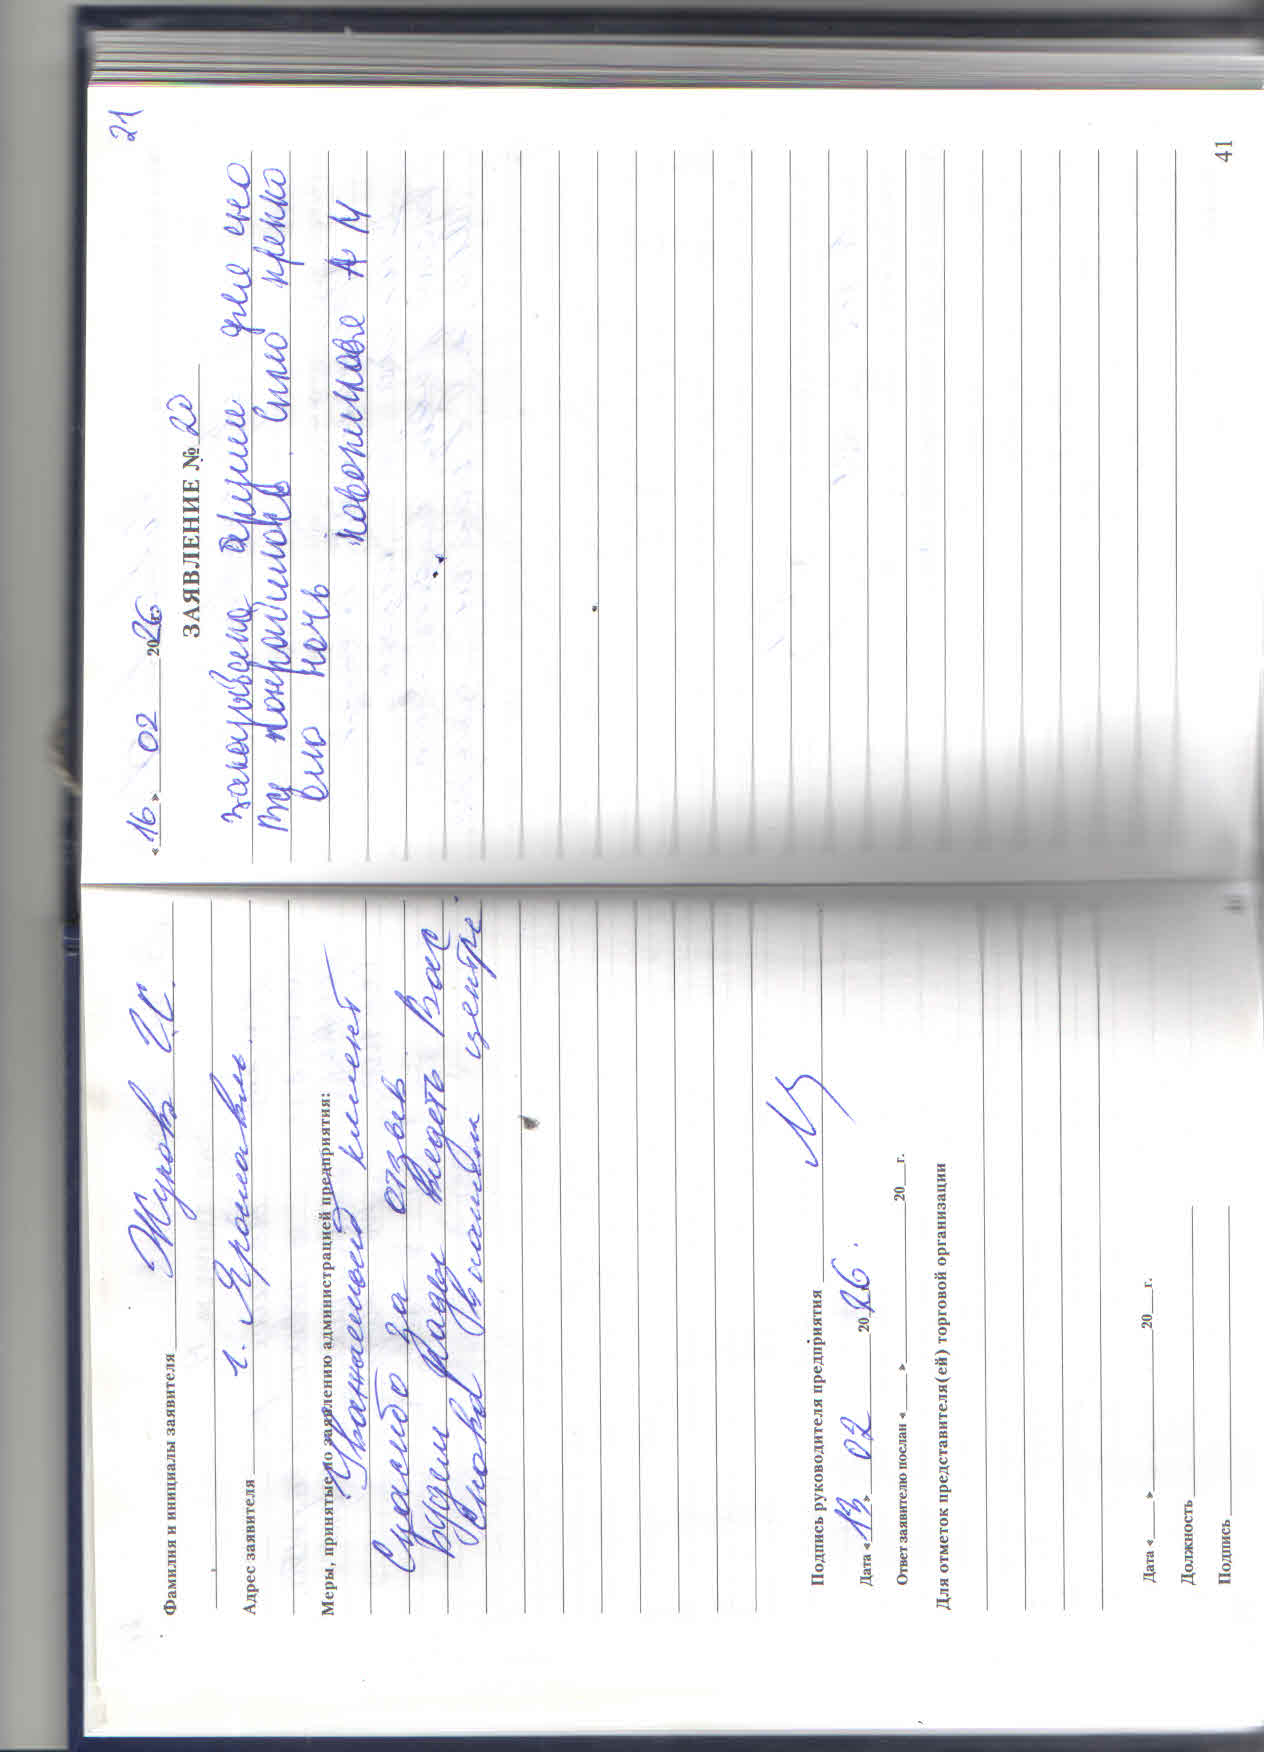 Фамилия и инициалы заявителя Жукова И.С.
Адрес заявителя г. Ярославль
Меры, принятые по заявлению администрацией предприятия:
Уважаемый клиент
Спасибо за отзыв
Будем рады видеть Вас
снова в нашем центре.
Подпись руководителя предприятия
Дата «13» 02 2026.
Ответ заявителю послан «___»______20__г.
Для отметок представителя(ей) торговой организации
Дата «___»______20__г.
Должность
Подпись
21
«16» 02 2026 г.
ЗАЯВЛЕНИЕ № 20
заказывала для
понравилось
ночь
А М
41